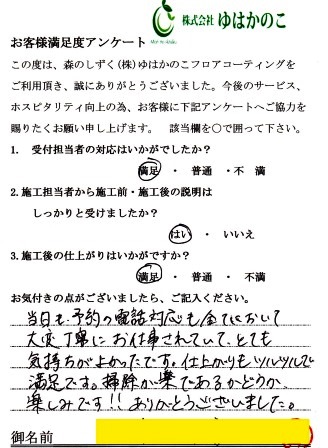 株式会社 ゆはかのこ
お客様満足度アンケート
この度は、森のしずく(株)ゆはかのこフロアコーティングを
ご利用頂き、誠にありがとうございました。今後のサービス、
ホスピタリティ向上の為、お客様に下記アンケートへご協力を
賜りたくお願い申し上げます。 該当欄を○で囲って下さい。
1. 受付担当者の対応はいかがでしたか？
満足 ・ 普通 ・不 満
2. 施工担当者から施工前・施工後の説明は
しっかりと受けましたか？
はい ・ いいえ
3. 施工後の仕上がりはいかがですか？
満足 ・ 普通 ・ 不満
お気付きの点がございましたら、ご記入ください。
当日も予約の電話対応も全てにおいて
大変丁寧にお仕事されていて、とても
気持ちがよかったです。仕上がりもツルツルで
満足です。掃除が楽であるかどうか、
楽しみです!! ありがとうございました。
御名前